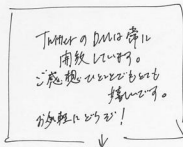 TwitterのDMは常に
開放しています。
ご感想ひとことでもとても
嬉しいです。
お気軽にどうぞ!